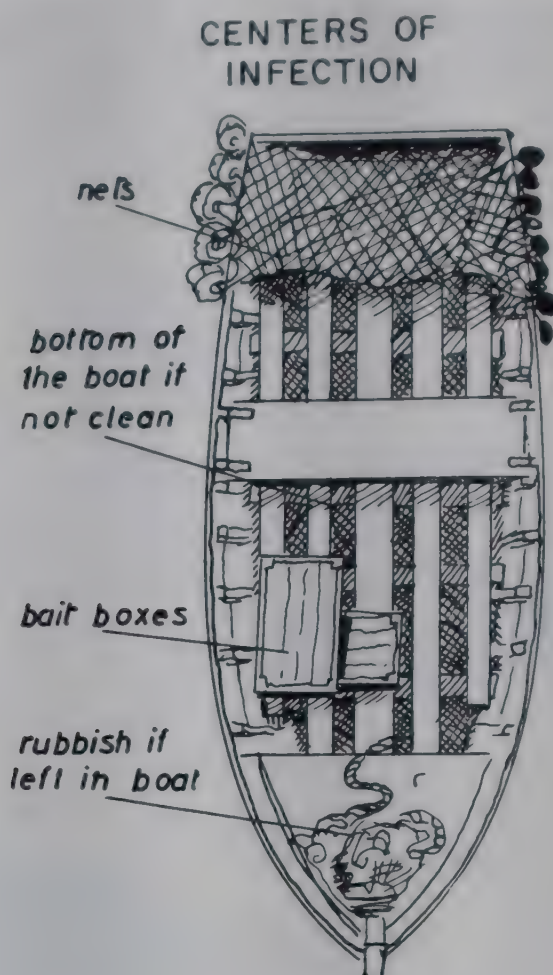 CENTERS OF
INFECTION
nets
bottom of
the boat if
not clean
bait boxes
rubbish if
left in boat